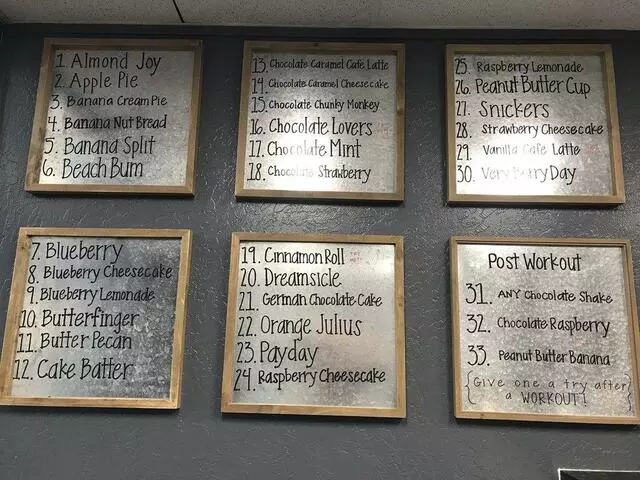 1. Almond Joy
2. Apple Pie
3. Banana Cream Pie
4. Banana Nut Bread
5. Banana Split
6. Beach Bum
7. Blueberry
8. Blueberry Cheesecake
9. Blueberry Lemonade
10. Butterfinger
11. Butter Pecan
12. Cake Batter
13. Chocolate Caramel Cafe Latte
14. Chocolate Caramel Cheesecake
15. Chocolate Chunky Monkey
16. Chocolate Lovers
17. Chocolate Mint
18. Chocolate Strawberry
19. Cinnamon Roll TRY
20. Dreamsicle
21. German Chocolate Cake
22. Orange Julius
23. Payday
24. Raspberry Cheesecake
25. Raspberry Lemonade
26. Peanut Butter Cup
27. Snickers
28. Strawberry Cheesecake
29. Vanilla Cafe Latte
30. Very Berry Day
Post Workout
31. ANY Chocolate Shake
32. Chocolate Raspberry
33. Peanut Butter Banana
{Give one a try after}
{a WORKOUT!}